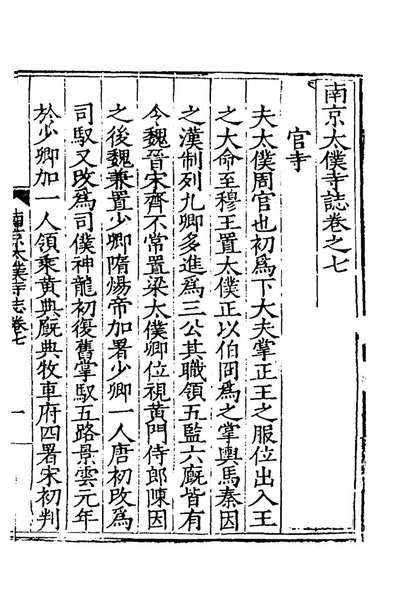 南京太僕寺誌卷之七
官寺
夫太僕周官也初爲下大夫掌正王之服位出入王
之大命至穆王置太僕正以伯冏爲之掌輿馬秦因
之漢制列九卿多進爲三公其職領五監六廐皆有
今魏晉宋齊不常置梁太僕卿位視黃門侍郎陳因
之後魏兼置少卿隋煬帝加署少卿一人唐初改爲
司馭又改爲司僕神龍初復舊掌馭五路景雲元年
於少卿加一人領乘黃典廐典牧車府四署宋初判
南京太僕寺志卷七
一